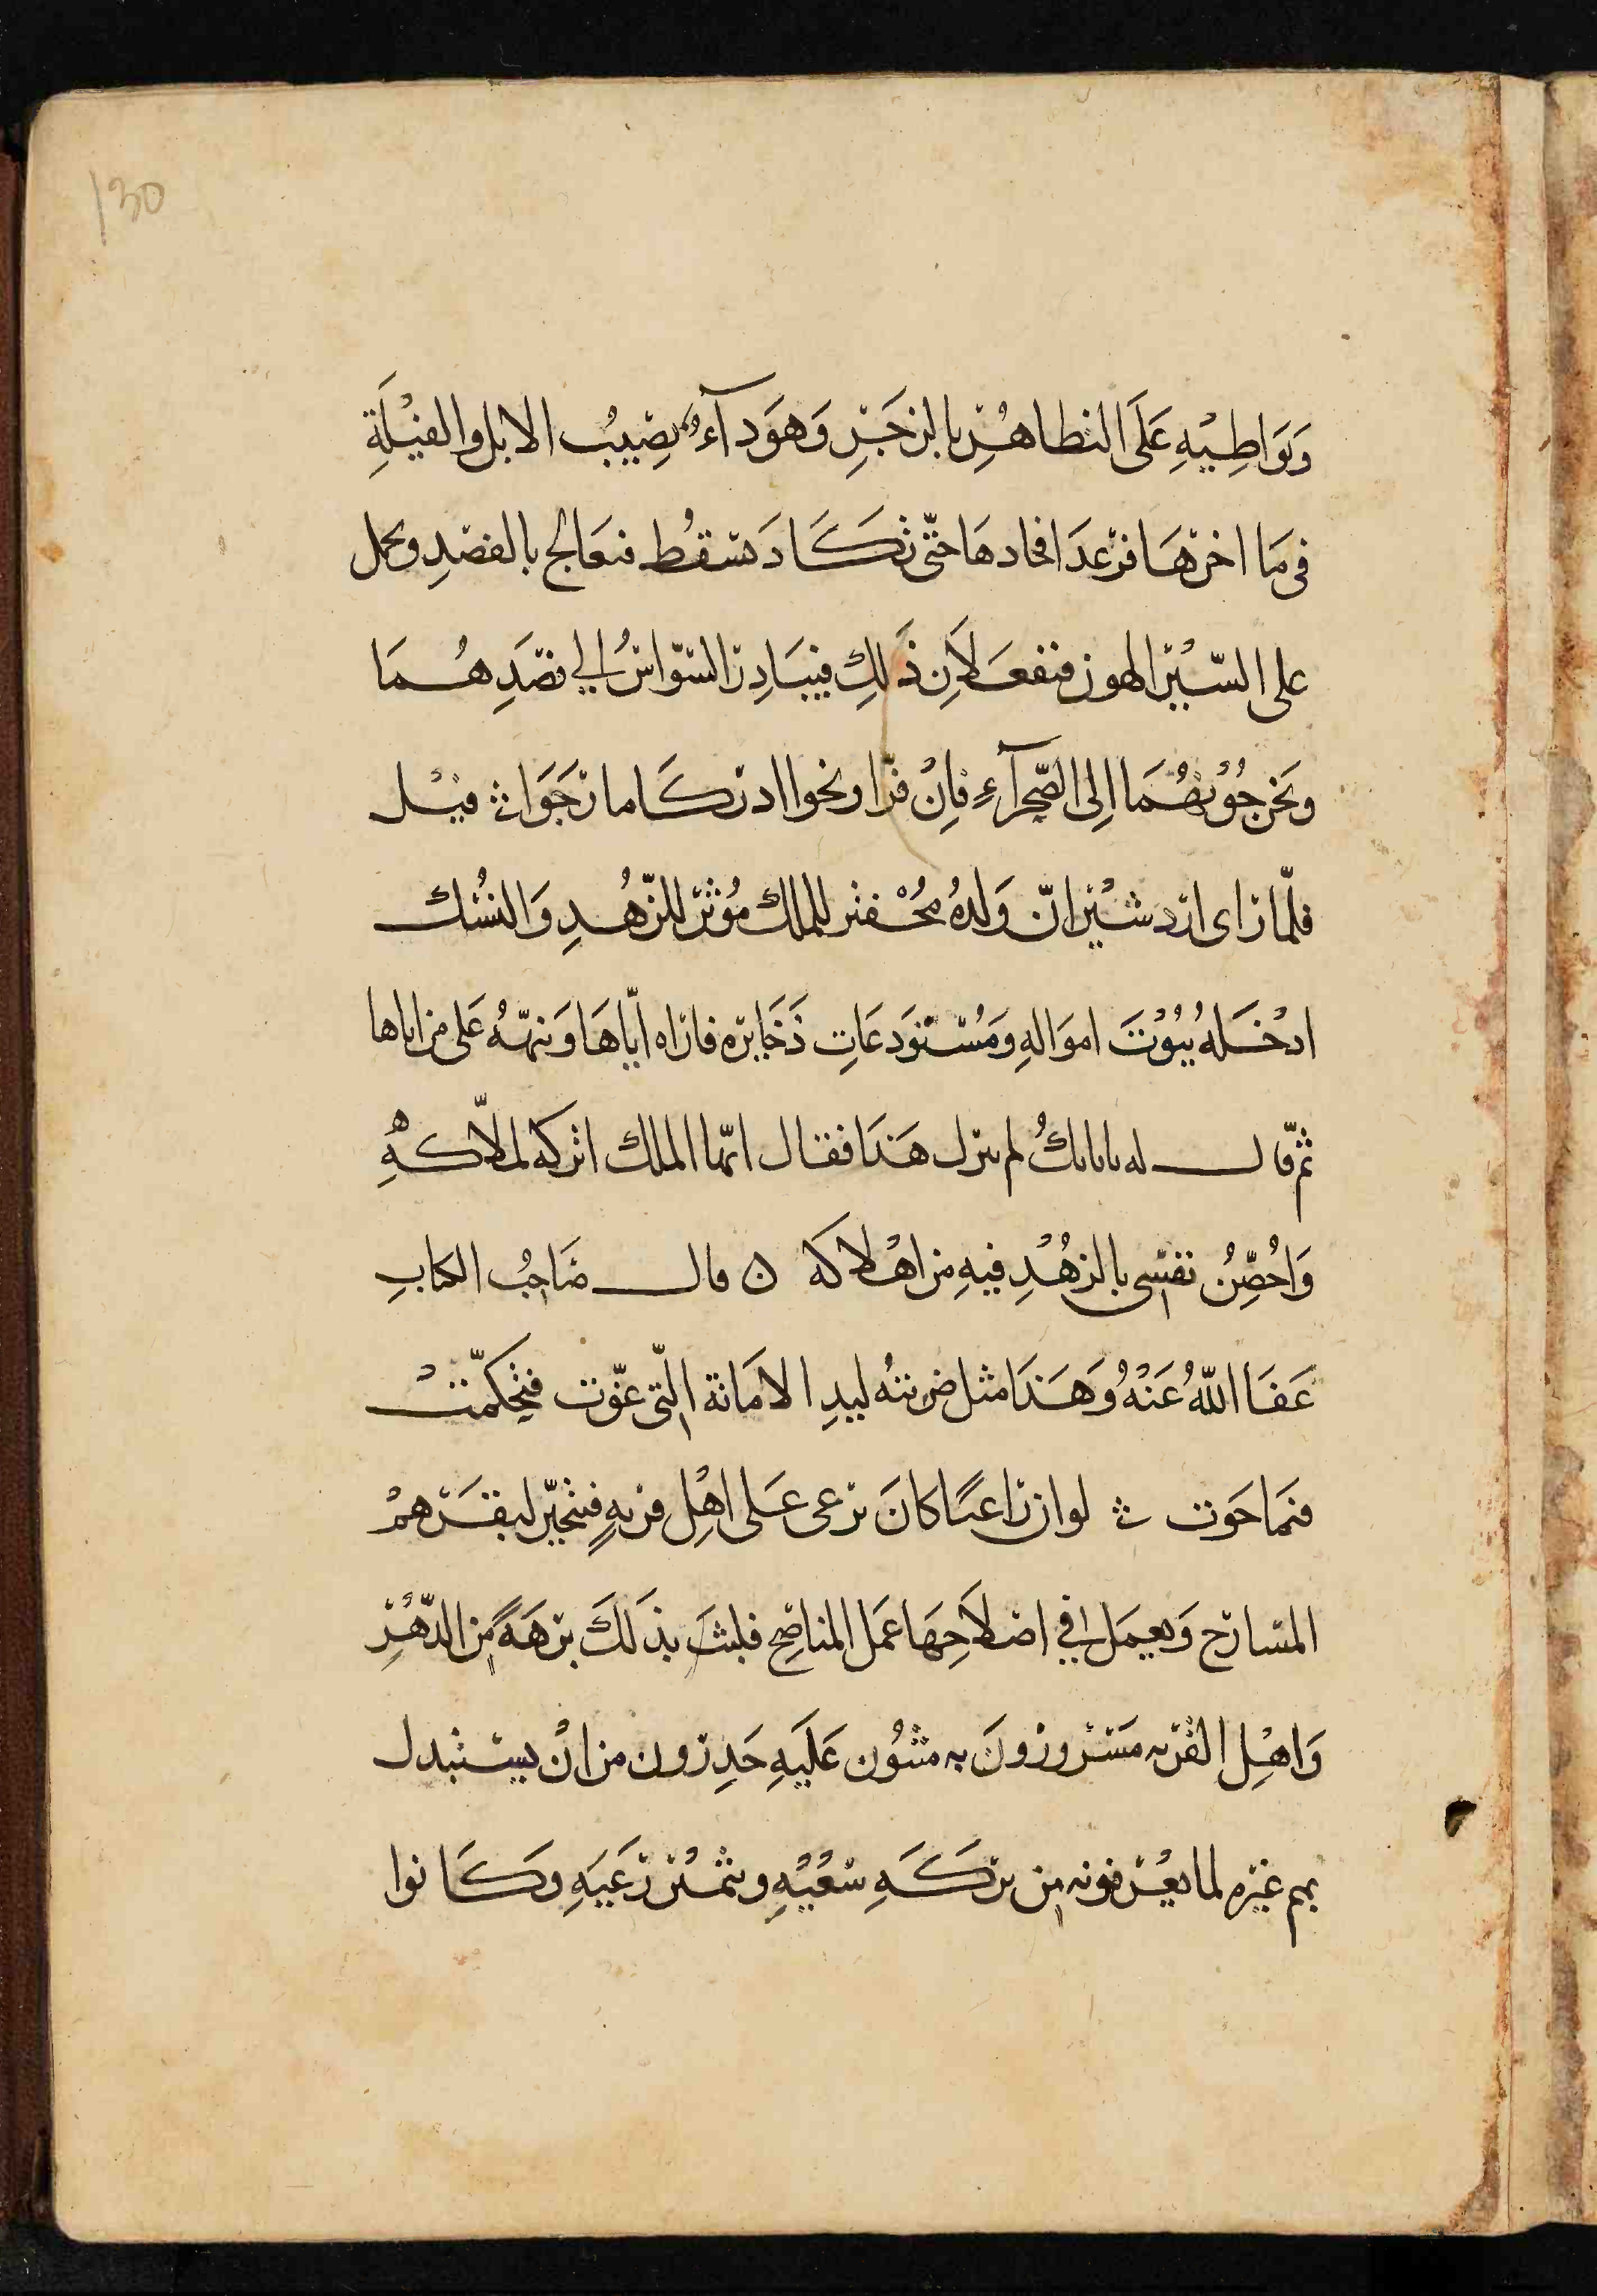 130
وَيَوَاطِيْهِ عَلَى التظاهُرِ بالزجَرِ وَهوَدآءٌ يصِيبُ الابل والفيْلَةِ
فى مَا اخرهَا فترعدَ افخادهَا حتّى تكَادَ تسقُط فتعَالج بالفصْدِ ويحمل
على السّيْر الهون فتفعَلان ذَلكِ فيبَادِر السّوّاسُ الى فصَدِهُمَا
ويَخرجُوْنهُمَا الِى الصّحرآءِ فاِنْ فرّا ونحوا ادركَا ما رَجَوَا ث قيْل
فلمّا راى اردشيْر انّ وَلدهُ مُحْتقر للملك مُوْثر للزّهُدِ وَالنُسُك
ادْخَلهُ بيُوْتَ اموَالهِ ومَسْتَوْدعَاتِ ذَخَايره فاراه ايّاهَا وَنبّهُ عَلى مزاياها
ثمّ قال له يابابكُ لم يترل هَذا فقال ايّها الملك اتركه لهلاّكهِ
وَاحُصِّنُ نفسى بالزهُدِ فيهِ من اهْلاكه ۝ قال صَاحِبُ الكتابِ
عَفَا اللّهُ عَنْهُ وَهَذَا مثل ضربته لبيدِ الامَانة الّتى عوّت فتحِكمّتْ
فمَا حَوت ث لوان رَاعيًا كانَ يرعى عَلى اهْلِ قريهٍ فيتخيّر لبقَرهمْ
المسَارح وَيعمَل فى اصْلاَحِهَا عمَل المناصِحِ فلبثَ بذَلكَ برهَةً من الدّهْرِ
وَاهْلِ القريه مَسْرورُونَ به مثنُون عَليَهِ حَدِرون من انْ يستبدل
بهم غيْره لما يعْرفونه من بركَهِ سَعْيْهِ ويثمْر رَعَيَهِ وكَانوا